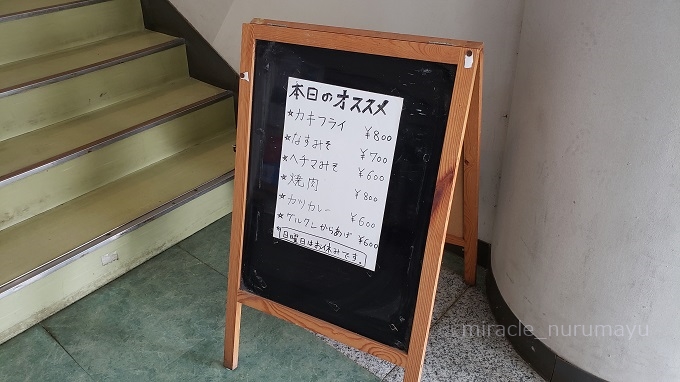 本日のオススメ
★カキフライ ¥800
★なすみそ ¥700
★ヘチマみそ ¥600
★焼肉 ¥800
★カツカレー ¥600
★グルクンからあげ ¥600
*日曜日はお休みです。
miracle_nurumayu